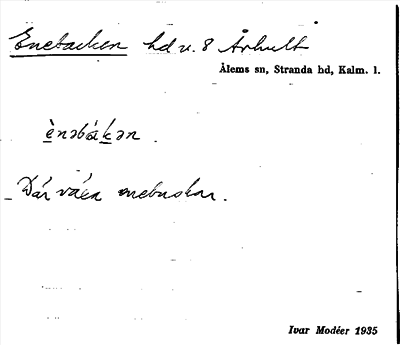 Enebacken hd v. 8 Århult
Ålems sn, Stranda hd, Kalm. l.
ènəbákən.
Där växa enebuskar.
Ivar Modéer 1935